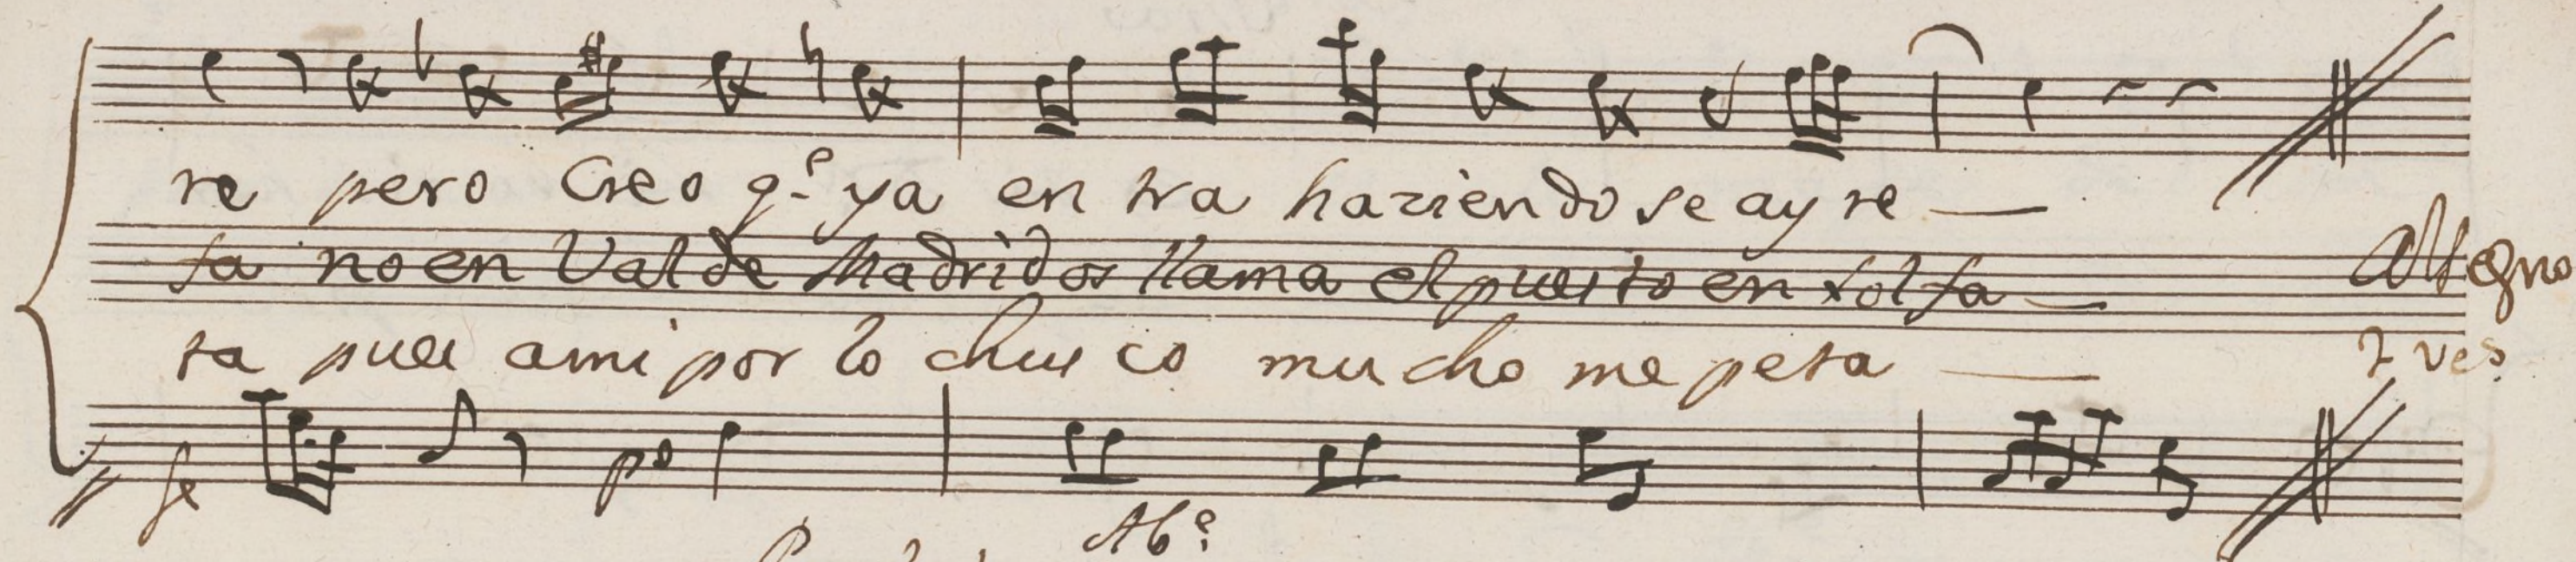 re pero Creo q.e ya en tra haziendo se ay re
fa no en Val de Madrid os llama el puesto en sol fa
Allegro
ta pues ami por lo chus co mucho me peta
2 ves
fe po
Ab.o